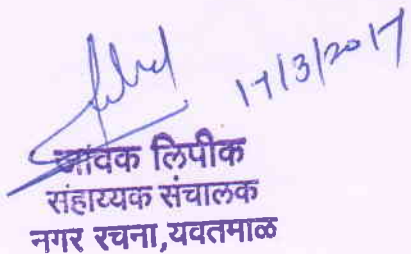 17/3/2017
जावक लिपीक
सहाय्यक संचालक
नगर रचना,यवतमाळ